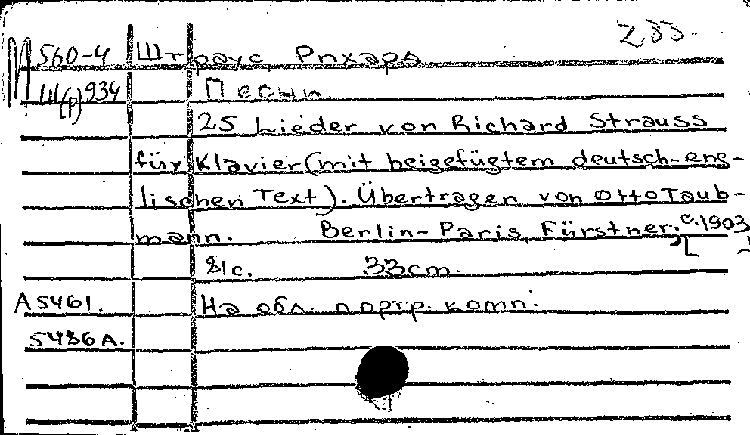 560-4 Штраус, Рихард
Ш(р)934 Песни
25 Lieder von Richard Strauss
für Klavier (mit beigefügtem deutsch-eng-
lischen Text). Übertragen von Otto Taub-
mann. Berlin-Paris, Fürstner, c.1903
81с. 33cm.
А5461. На обл. портр. комп.
5436А.